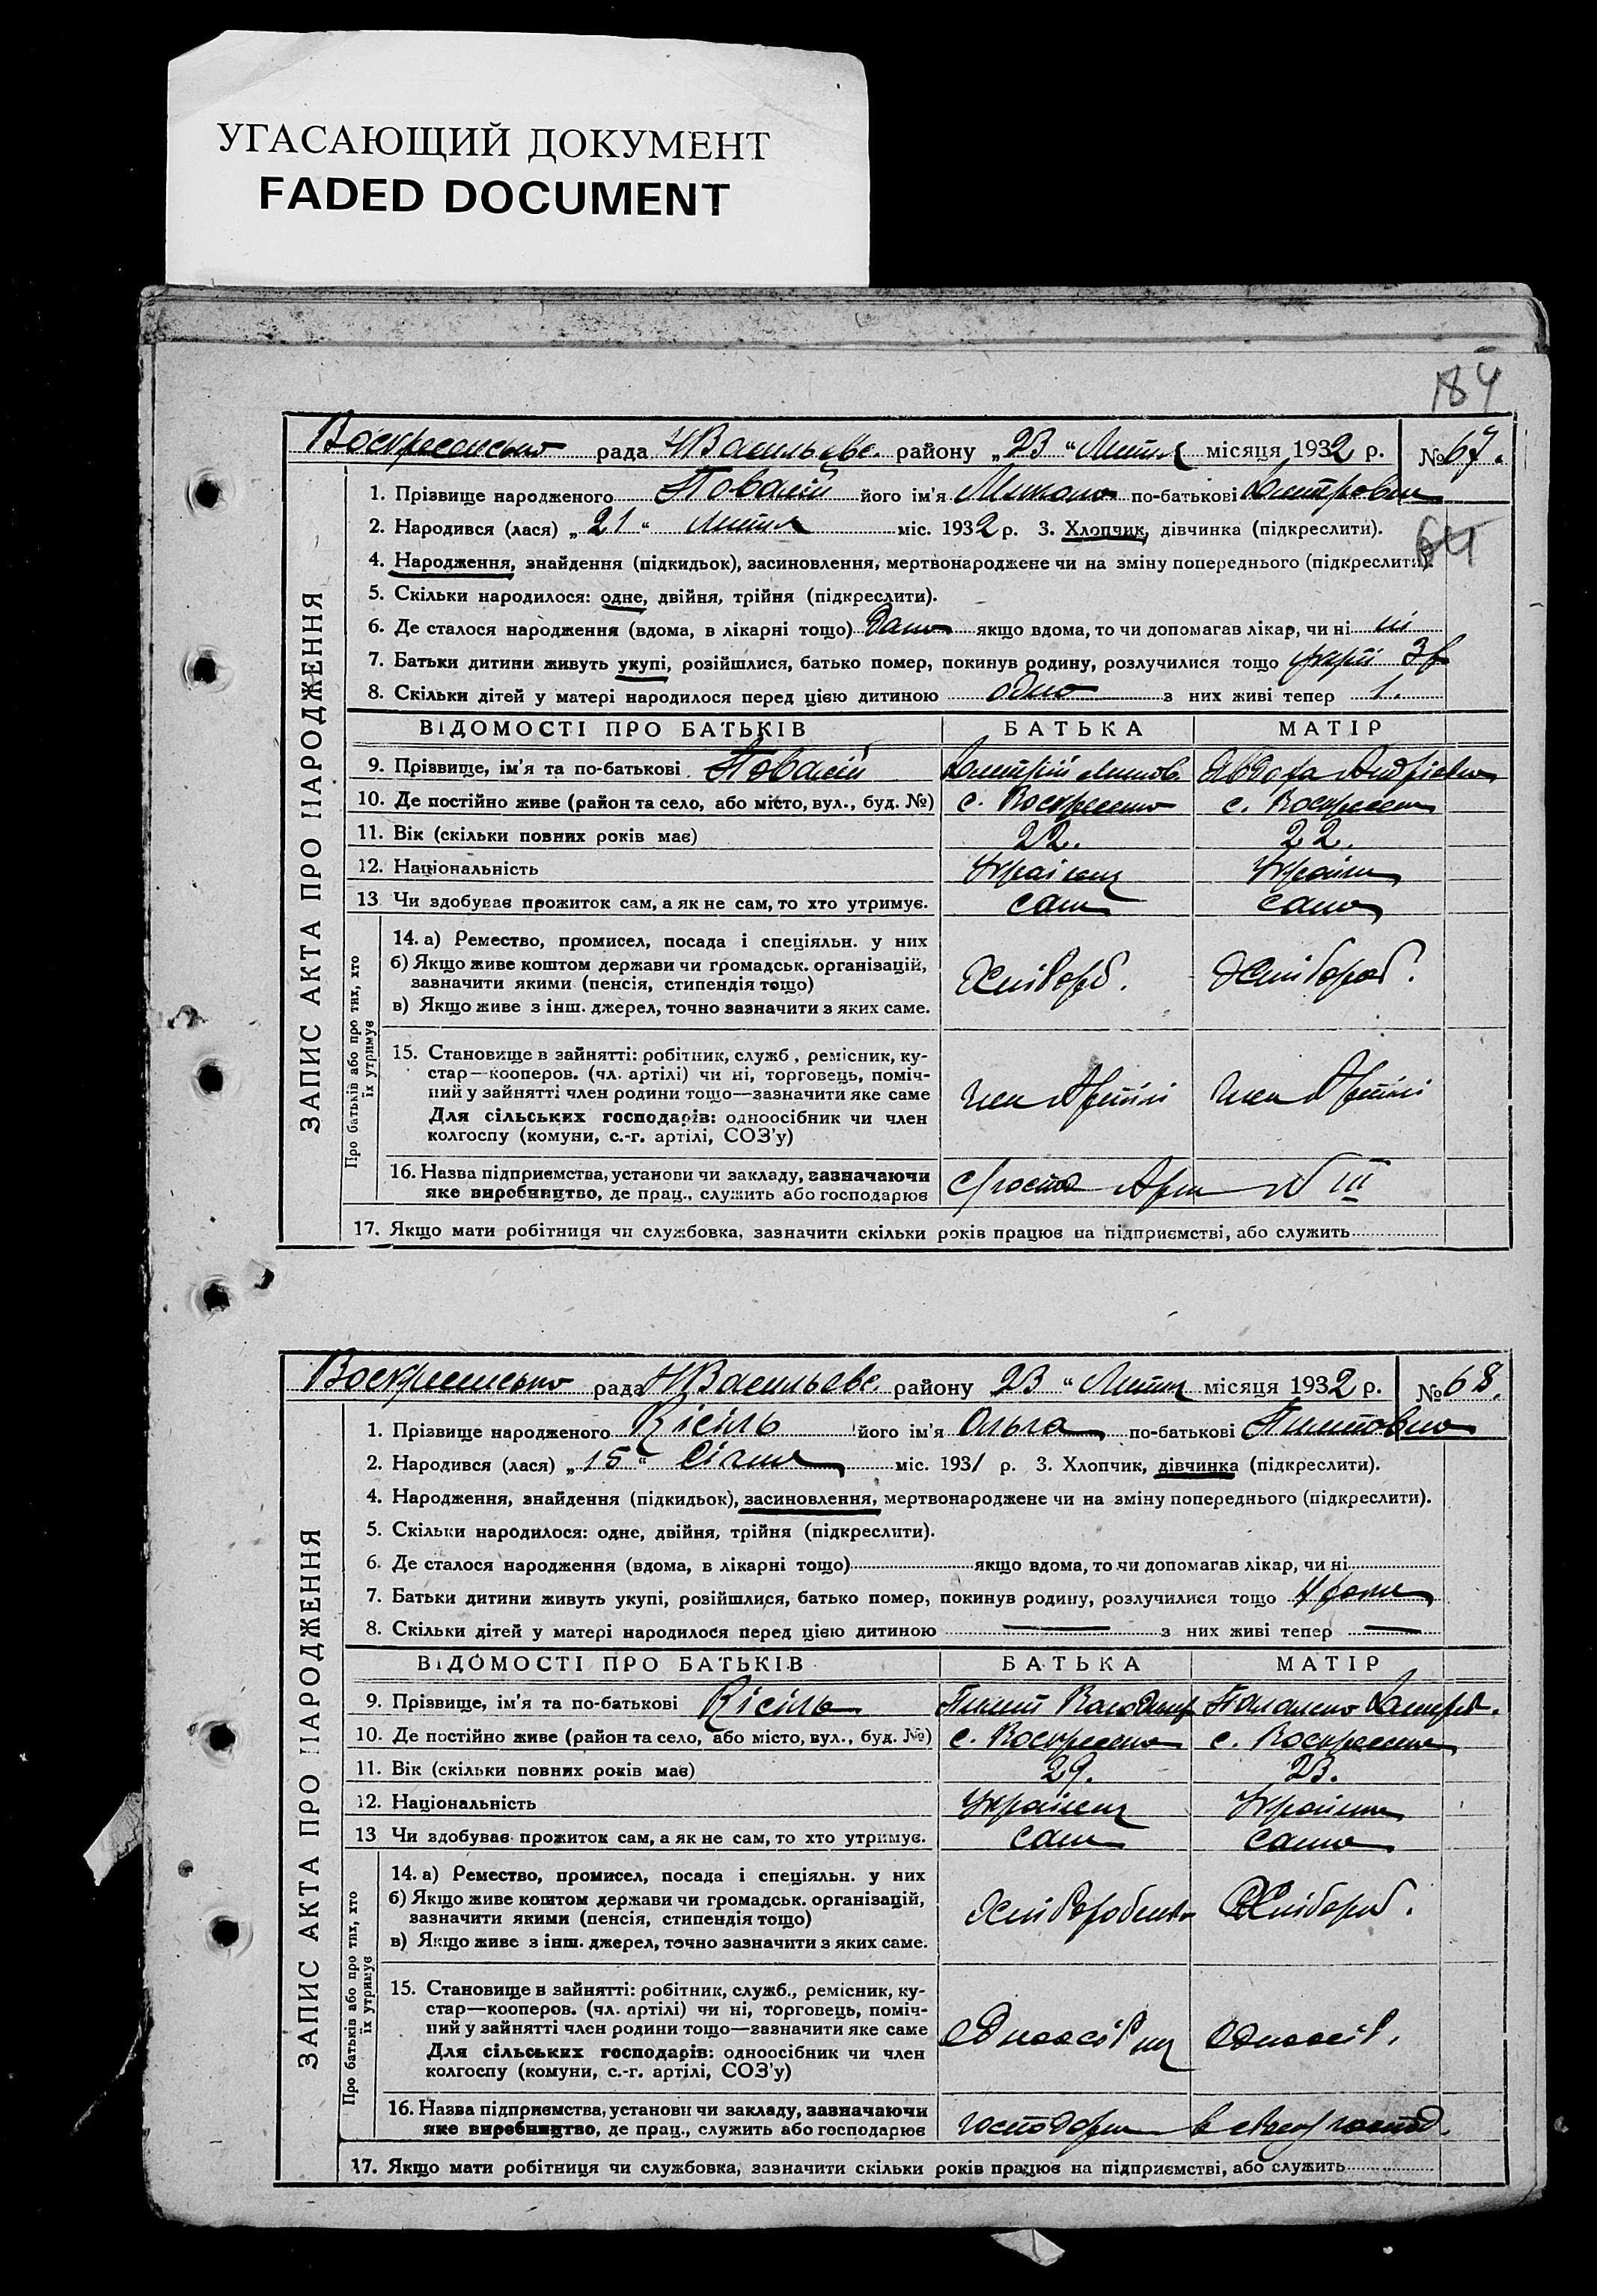 УГАСАЮЩИЙ ДОКУМЕНТ
FADED DOCUMENT
184
рада районy „23“ Липня місяця 1932 р. № 67.
1. Прізвище народженого Повалій його ім'я Микола по-батькові
2. Народився (лася) „21“ Липня міс. 1932 р. 3. Хлопчик, дівчинка (підкреслити).
64
4. Народження, знайдення (підкидьок), засиновлення, мертвонароджене чи на зміну попереднього (підкреслити).
5. Скільки народилося: одне, двійня, трійня (підкреслити).
6. Де сталося народження (вдома, в лікарні тощо) якщо вдома, то чи допомагав лікар, чи ні ні
7. Батьки дитини живуть укупі, розійшлися, батько помер, покинув родину, розлучилися тощо укупі
8. Скільки дітей у матері народилося перед цією дитиною одно з них живі тепер 1.
ВІДОМОСТІ ПРО БАТЬКІВ БАТЬКА МАТІР
9. Прізвище, ім'я та по-батькові Повалій Дмитрій Явдоха Андріевна
10. Де постійно живе (район та село, або місто, вул., буд. №) с. с.
11. Вік (скільки повних років має) 22. 22.
12. Національність Українц Україн
13 Чи здобував прожиток сам, а як не сам, то хто утримує. сам сама
14. а) Ремество, промисел, посада і спеціяльн. у них
б) Якщо живе коштом держави чи громадськ. організацій,
зазначити якими (пенсія, стипендія тощо) Хлібороб.
в) Якщо живе з інш. джерел, точно зазначити з яких саме.
15. Становище в зайнятті: робітник, служб., ремісник, ку-
стар—кооперов. (чл. артілі) чи ні, торговець, поміч-
ний у зайнятті член родини тощо—зазначити яке саме член Артілі член Артілі
Для сільських господарів: одноосібник чи член
колгоспу (комуни, с.-г. артілі, СОЗ'у)
16. Назва підприємства, установи чи закладу, зазначаючи
яке виробництво, де прац., служить або господарює № III
17. Якщо мати робітниця чи службовка, зазначити скільки років працює на підприємстві, або служить
ЗАПИС АКТА ПРО НАРОДЖЕННЯ
Про батьків або про тих, хто
їх утримує
рада району 23“ Липня місяця 1932 р. № 68.
1. Прізвище народженого Кісіль його ім'я Ольга по-батькові
2. Народився (лася) „15“ Січня міс. 1931 р. 3. Хлопчик, дівчинка (підкреслити).
4. Народження, знайдення (підкидьок), засиновлення, мертвонароджене чи на зміну попереднього (підкреслити).
5. Скільки народилося: одне, двійня, трійня (підкреслити).
6. Де сталося народження (вдома, в лікарні тощо) якщо вдома, то чи допомагав лікар, чи ні
7. Батьки дитини живуть укупі, розійшлися, батько помер, покинув родину, розлучилися тощо
8. Скільки дітей у матері народилося перед цією дитиною — з них живі тепер —
ВІДОМОСТІ ПРО БАТЬКІВ БАТЬКА МАТІР
9. Прізвище, ім'я та по-батькові Кісіль
10. Де постійно живе (район та село, або місто, вул., буд. №) с. с.
11. Вік (скільки повних років має) 29. 23.
12. Національність Українц
13 Чи здобував прожиток сам, а як не сам, то хто утримує. сам сама
14. а) Ремество, промисел, посада і спеціяльн. у них
б) Якщо живе коштом держави чи громадськ. організацій,
зазначити якими (пенсія, стипендія тощо) Хлібороб.
в) Якщо живе з інш. джерел, точно зазначити з яких саме.
15. Становище в зайнятті: робітник, служб., ремісник, ку-
стар—кооперов. (чл. артілі) чи ні, торговець, поміч-
ний у зайнятті член родини тощо—зазначити яке саме Одноосіб.
Для сільських господарів: одноосібник чи член
колгоспу (комуни, с.-г. артілі, СОЗ'у)
16. Назва підприємства, установи чи закладу, зазначаючи
яке виробництво, де прац., служить або господарює в
17. Якщо мати робітниця чи службовка, зазначити скільки років працює на підприємстві, або служить
ЗАПИС АКТА ПРО НАРОДЖЕННЯ
Про батьків або про тих, хто
їх утримує